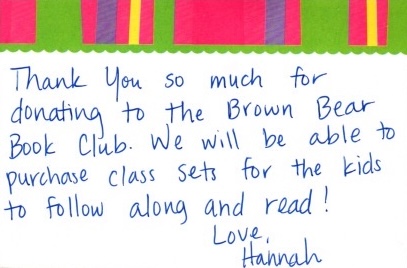 Thank You so much for
donating to the Brown Bear
Book Club. We will be able to
purchase class sets for the kids
to follow along and read!
Love,
Hannah